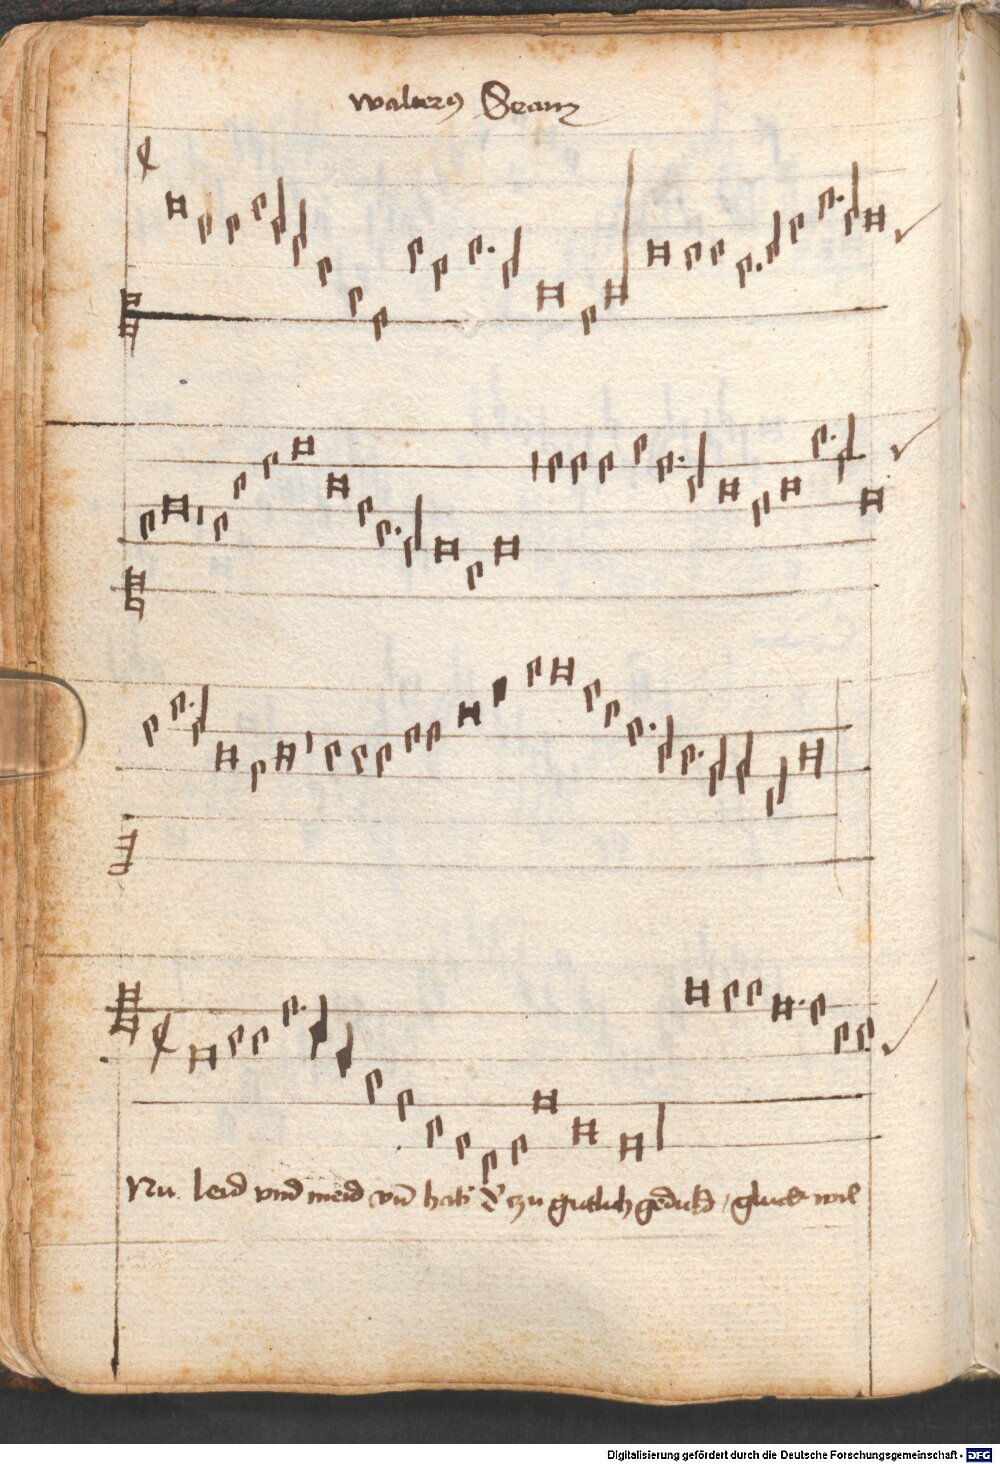 walterq Seam
Nu leid vnd meid vn̄ hab dir zu gutlich geduld / gluck wil
Digitalisierung gefördert durch die Deutsche Forschungsgemeinschaft - DFG